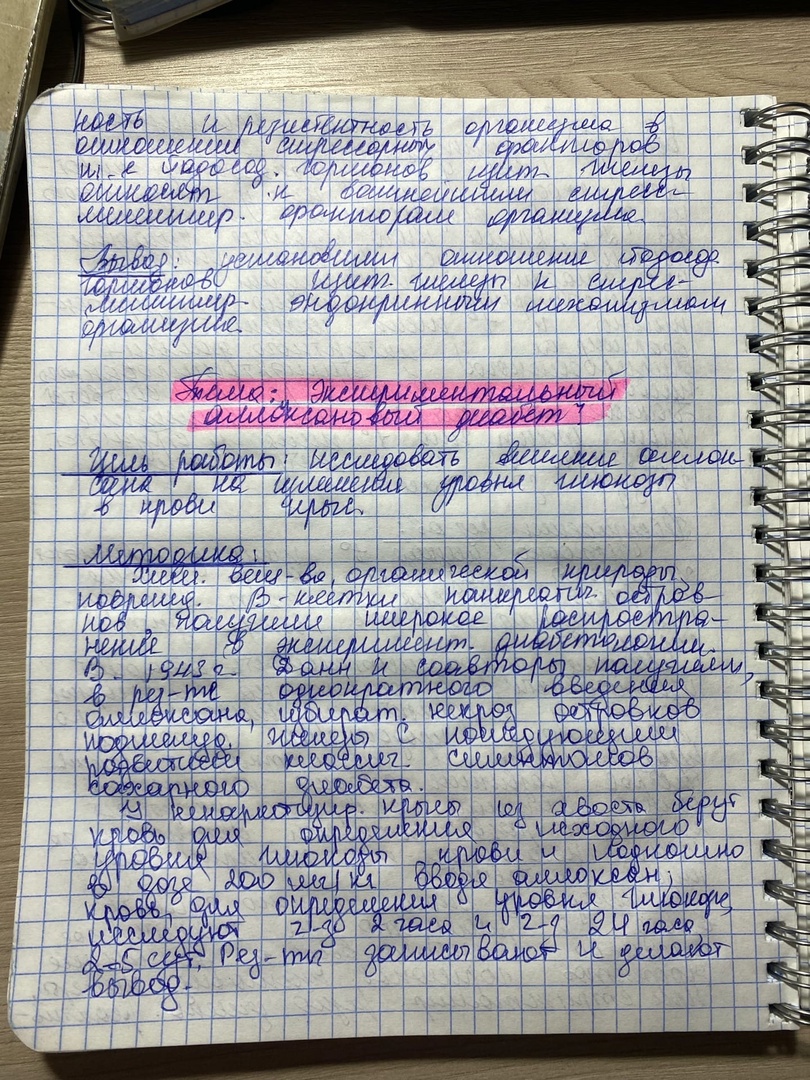 ность и резистентность организма в
отношении стрессорных факторов
т.е йодосод. гормонов щит. железы
относят к важнейшим стресс-
лимитир. факторам организма.
Вывод: установили отношение йодосод.
гормонов щит. железы к стресс-
лимитир. эндокринным механизмам
организма.
Тема: "Экспериментальный
аллоксановый диабет"
Цель работы: исследовать влияние аллок-
сана на изменения уровня глюкозы
в крови крыс.
Методика:
Хим. вещ-ва органической природы,
поврежд. В-клетки панкреатич. остров-
ков получили широкое распростра-
нение в эксперимент. диабетологии.
В 1943 г. Данн и соавторы получили,
в рез-те однократного введения
аллоксана, избират. некроз островков
поджелуд. железы с последующим
развитием классич. симптомов
сахарного диабета.
У ненаркотизир. крысы из хвоста берут
кровь для определения исходного
уровня глюкозы крови и подкожно
в дозе 200 мг/кг вводя аллоксан,
кровь для определения уровня глюкозы,
исследуют ч-з 2 часа и ч-з 24 часа,
2-5 сут. Рез-ты записывают и делают
вывод.